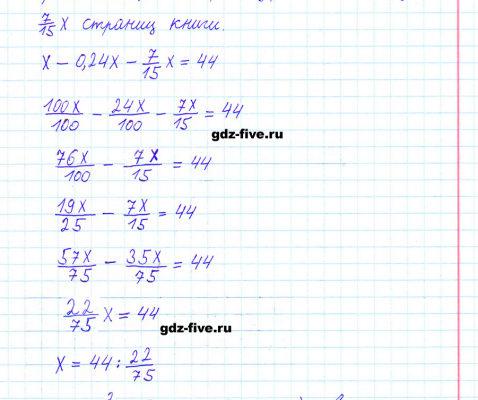 7/15 x страниц книги.
x − 0,24x − 7/15 x = 44
100x/100 − 24x/100 − 7x/15 = 44
gdz-five.ru
76x/100 − 7x/15 = 44
19x/25 − 7x/15 = 44
57x/75 − 35x/75 = 44
22/75 x = 44
gdz-five.ru
x = 44 : 22/75